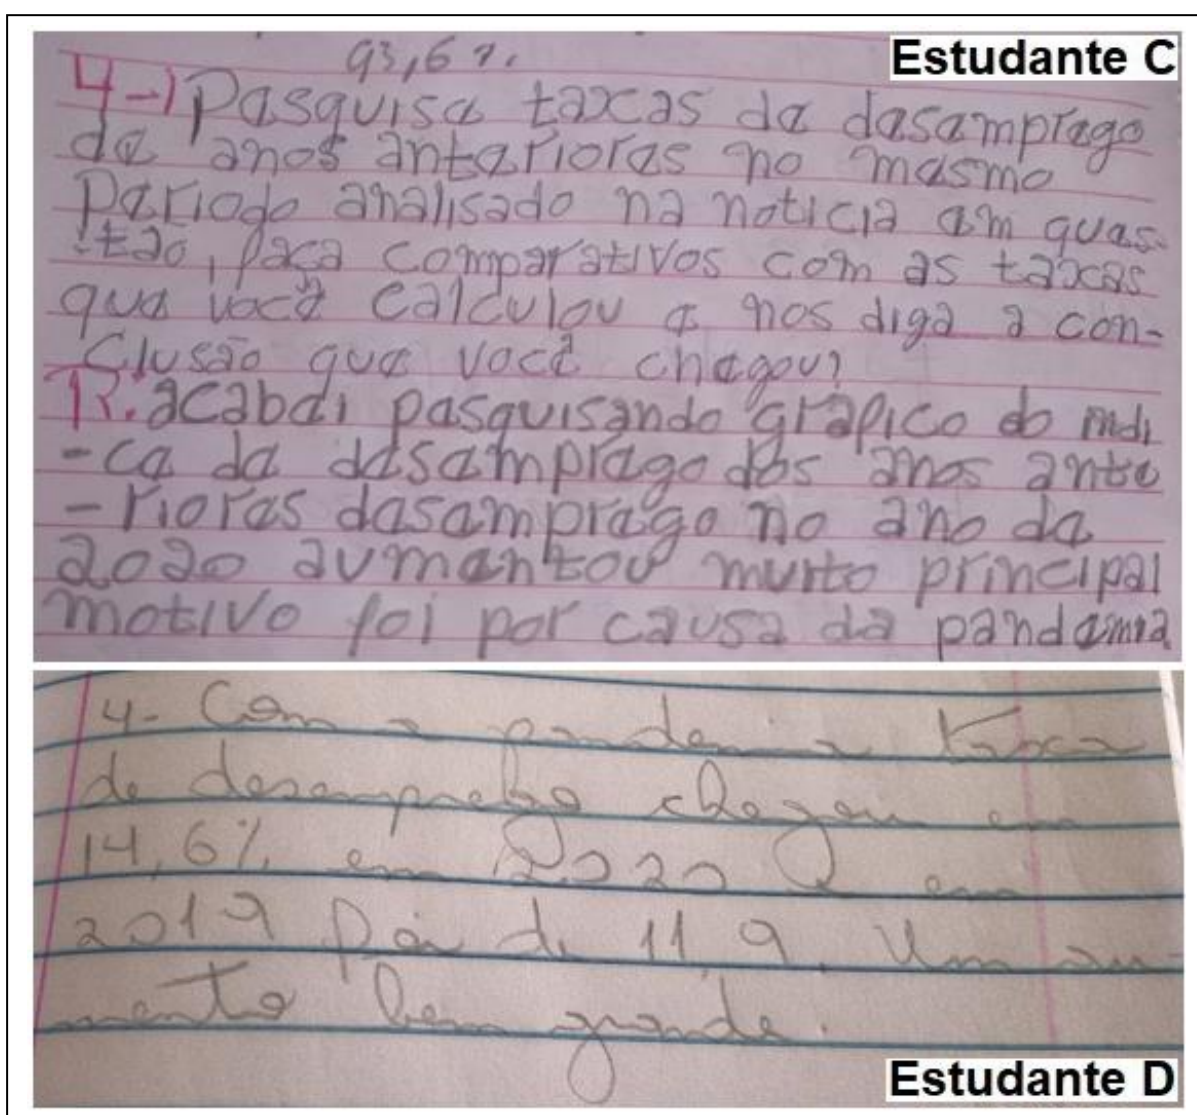 93,6%.
Estudante C
4-) Pesquisa taxas de desemprego
de anos anteriores no mesmo
Período analisado na noticia em ques-
tão, faça comparativos com as taxas
que você calculou e nos diga a con-
clusão que você chegou?
R. acabei pesquisando gráfico do indi
-ce de desemprego dos anos ante
-riores desemprego no ano de
2020 aumentou muito principal
motivo foi por causa da pandemia
4- Com a pandemia taxa
de desemprego chegou em
14,6% em 2020 e em
2019 foi de 11,9. Um au-
mento bem grande.
Estudante D